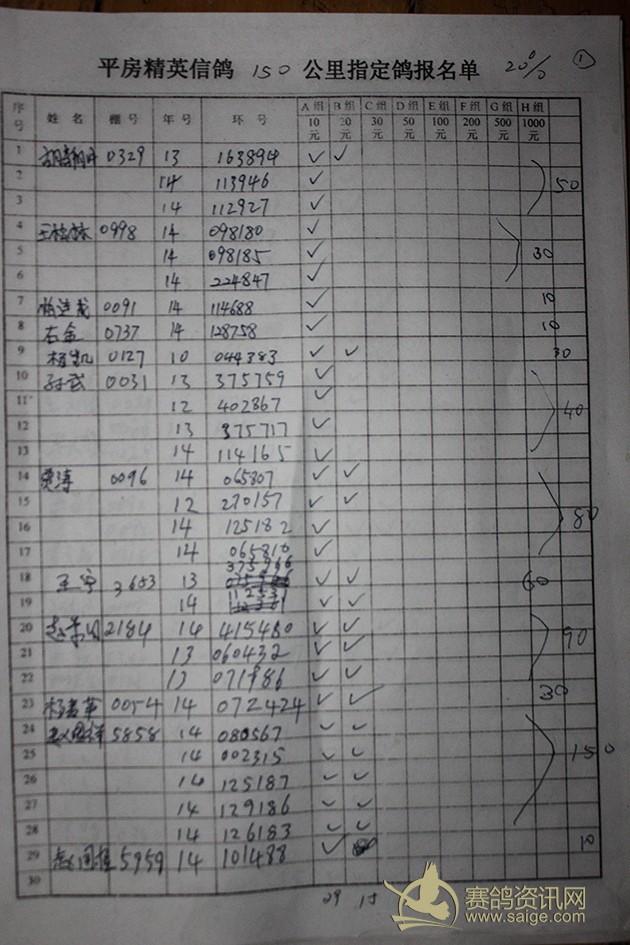 平房精英信鸽 150 公里指定鸽报名单 20% ①
序号 姓名 棚号 年号 环号 A组 B组 C组 D组 E组 F组 G组 H组
10元 20元 30元 50元 100元 200元 500元 1000元
1 0329 13 163894 ✓ ✓
2 14 113946 ✓ 50
3 14 112927 ✓
4 0998 14 098180 ✓
5 14 098185 ✓ 30
6 14 224847 ✓
7 0091 14 114688 ✓ 10
8 右金 0737 14 128758 ✓ 10
9 杨凯 0127 10 044383 ✓ ✓ 30
10 孙武 0031 13 375759 ✓
11 12 402867 ✓ 40
12 13 375717 ✓
13 14 114165 ✓
14 贾涛 0096 14 065807 ✓ ✓
15 12 270157 ✓ ✓ 80
16 14 125182 ✓
17 14 065810 ✓
18 王宇 3653 13 375966 ✓ ✓ 60
19 14 ✓ ✓
20 2184 14 415480 ✓ ✓
21 13 060432 ✓ ✓ 90
22 13 071986 ✓ ✓
23 0054 14 072424 ✓ ✓ 30
24 5858 14 080567 ✓ ✓
25 14 002315 ✓ ✓ 150
26 14 125187 ✓ ✓
27 14 129186 ✓ ✓
28 14 126183 ✓ ✓
29 5959 14 101488 ✓ 10
30
29 15
赛鸽资讯网
www.saige.com